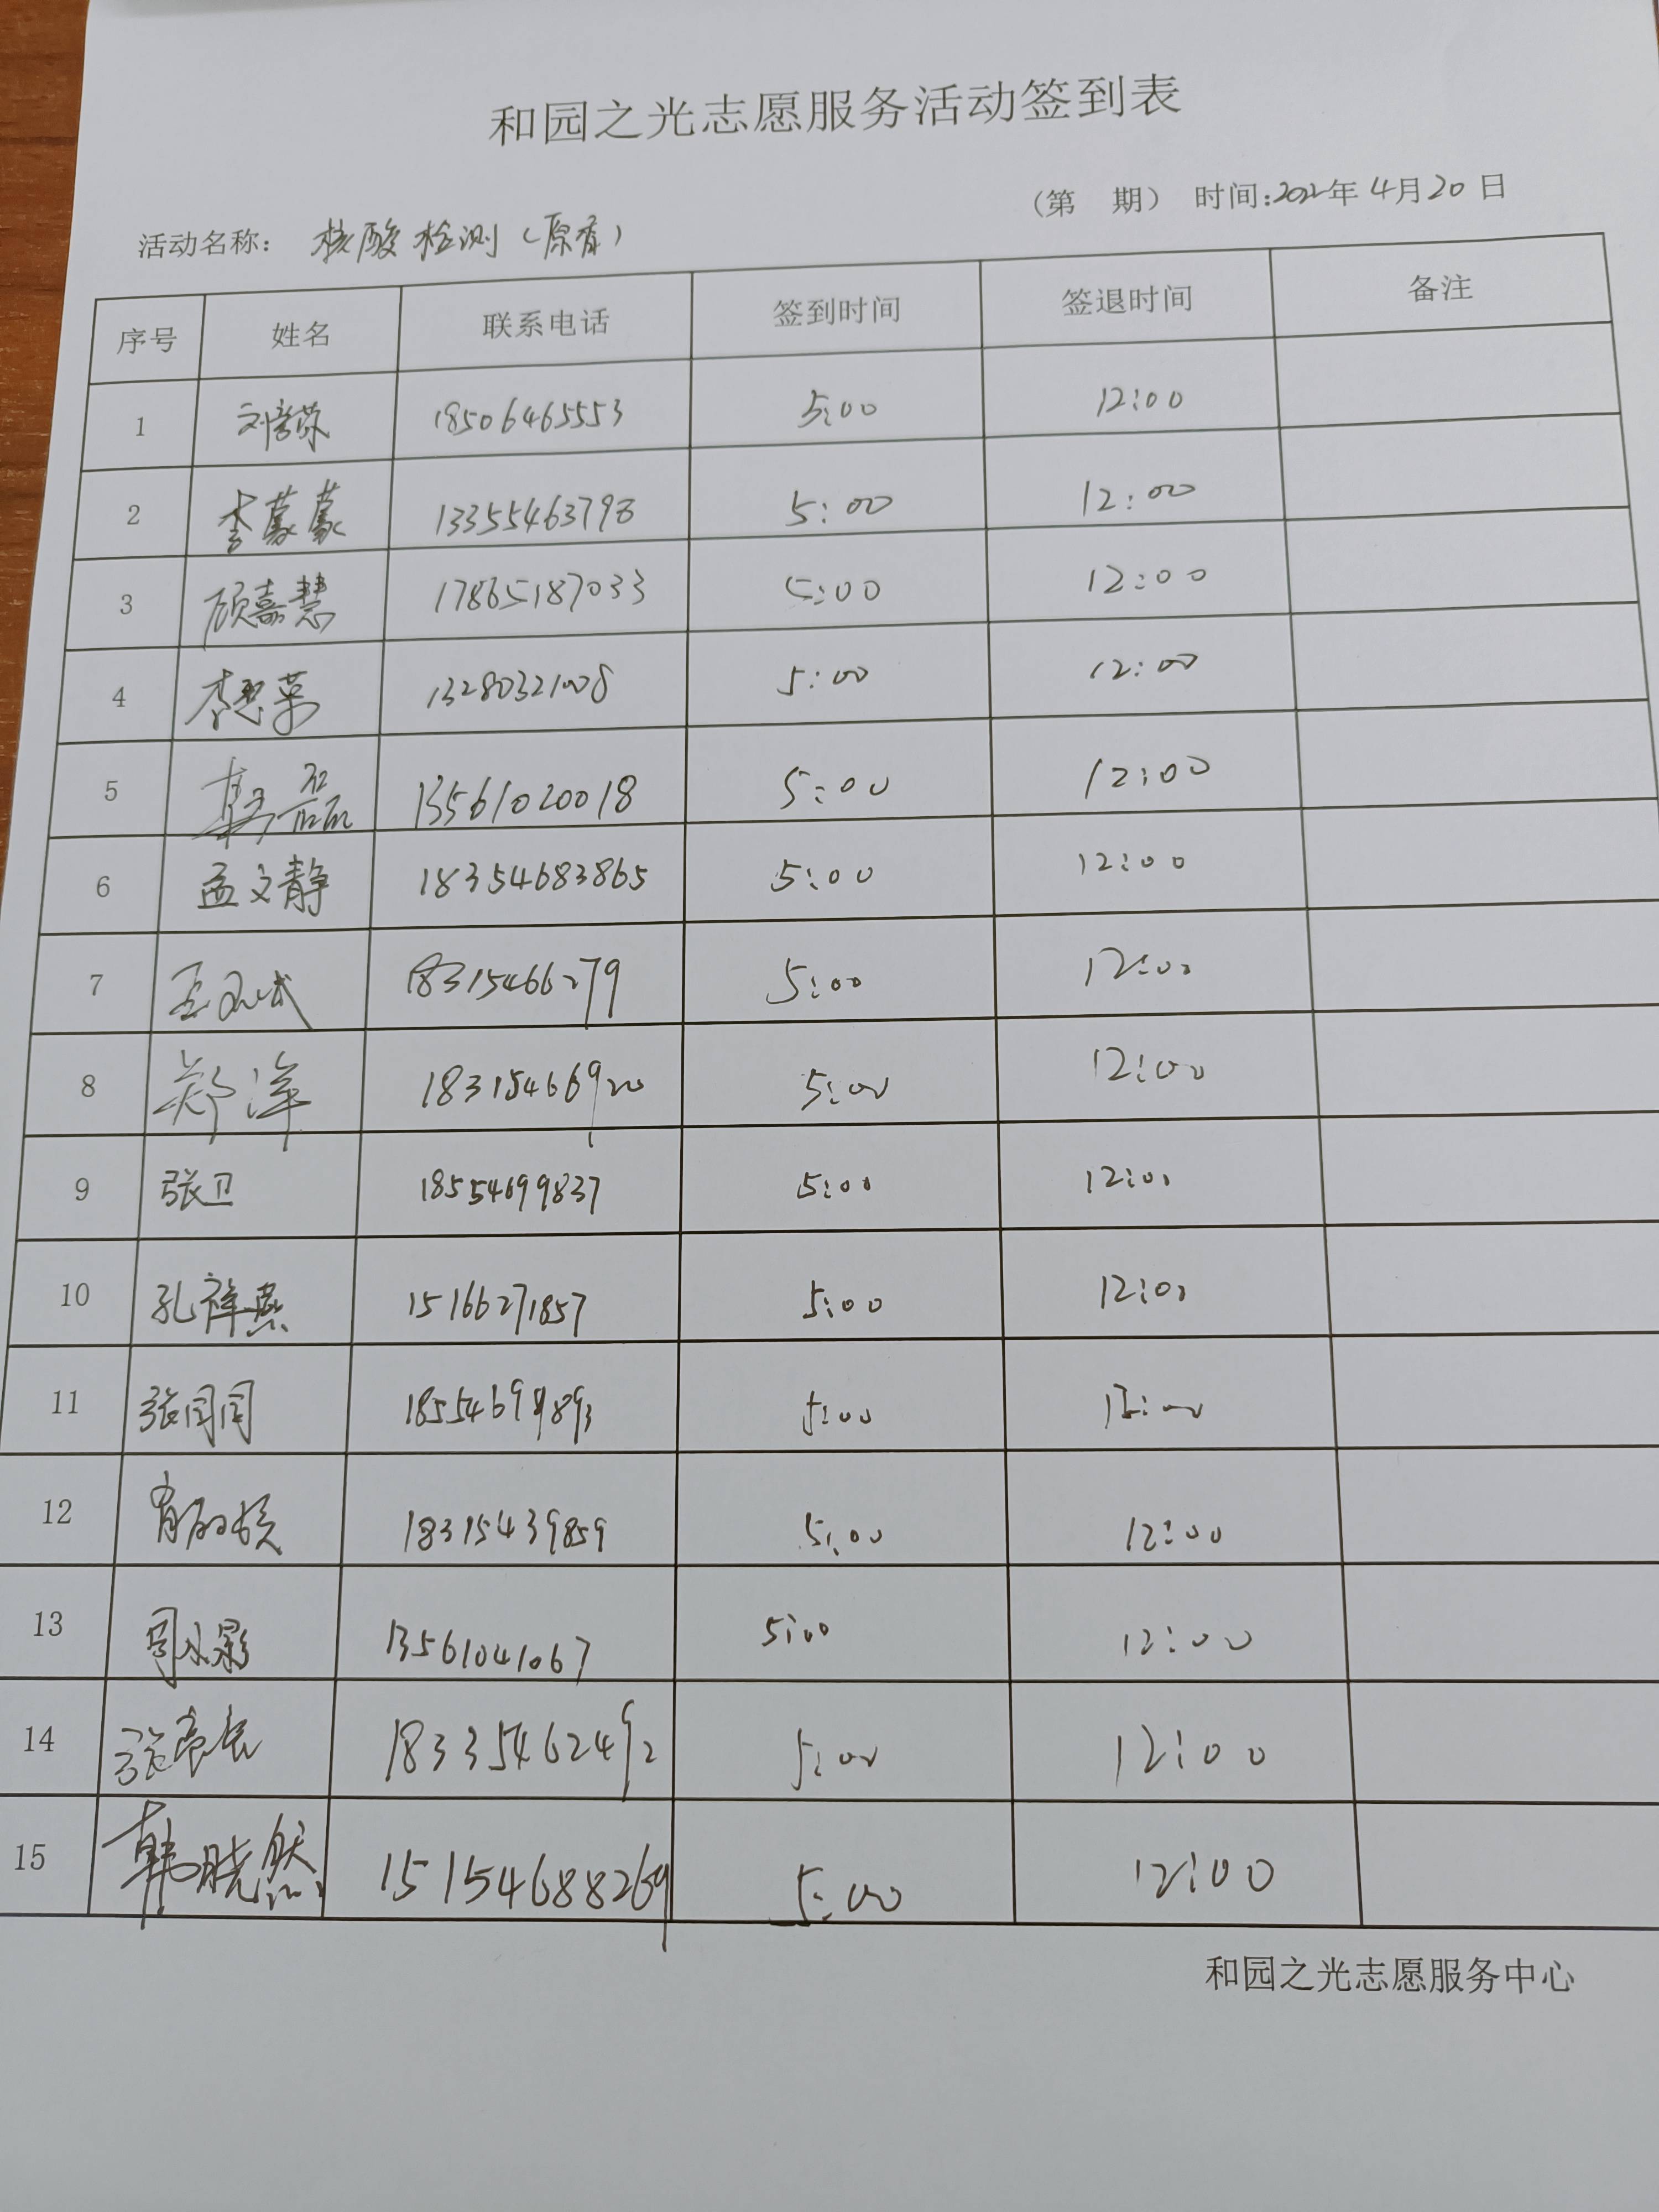 和园之光志愿服务活动签到表
（第 期） 时间:2022年4月20日
活动名称: 核酸检测（原有）
序号 姓名 联系电话 签到时间 签退时间 备注
1 18506465553 5:00 12:00
2 李蒙蒙 13355463798 5:00 12:00
3 顾嘉慧 17865187033 5:00 12:00
4 13280321008 5:00 12:00
5 磊 13561020018 5:00 12:00
6 孟文静 18354683865 5:00 12:00
7 18315466279 5:00 12:00
8 郑洋 18315466920 5:00 12:00
9 张卫 18554699837 5:00 12:00
10 孔祥燕 15166271857 5:00 12:00
11 张闫闫 5:00 12:00
12 18315439859 5:00 12:00
13 13561041067 5:00 12:00
14 18335462492 5:00 12:00
15 韩晓然 15154688269 5:00 12:00
和园之光志愿服务中心